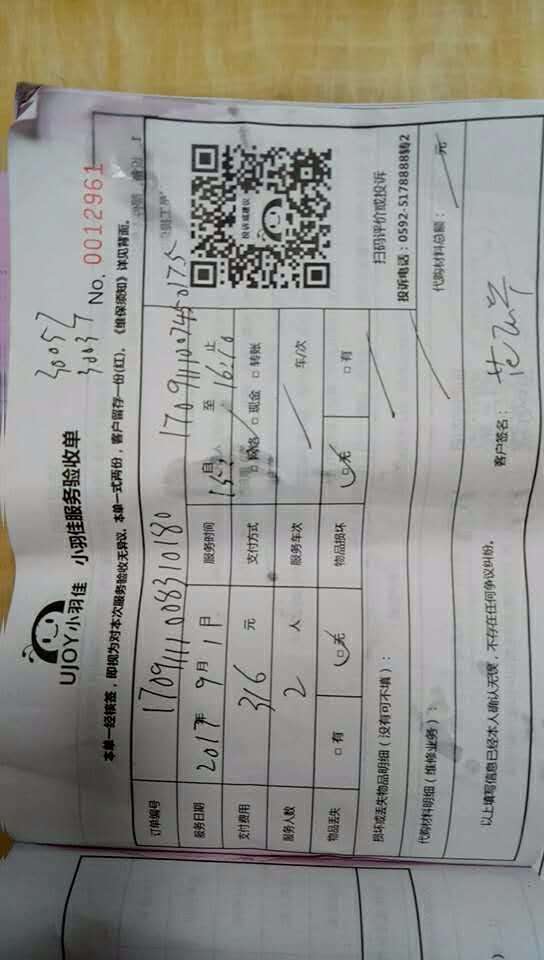 UJOY小羽佳 小羽佳服务验收单
30057
30037
No. 0012961
本单一经核签，即视为对本次服务验收无异议，本单一式两份，客户留存一份(红)，《维保须知》详见背面。
订单编号 170911100831080
服务日期 2017年 9月 1日 服务时间 至 16:10 止
支付费用 316 元 支付方式 □网络 □现金 □转账
服务人数 2 人 服务车次 车/次
物品丢失 □有 □无 物品损坏 □无 □有
投诉或建议
扫码评价或投诉
投诉电话：0592-5178888转2
损坏或丢失物品明细（没有可不填）：
代购材料明细（维修业务）： 代购材料总额： 元
以上填写信息已经本人确认无误，不存在任何争议纠纷。 客户签名：